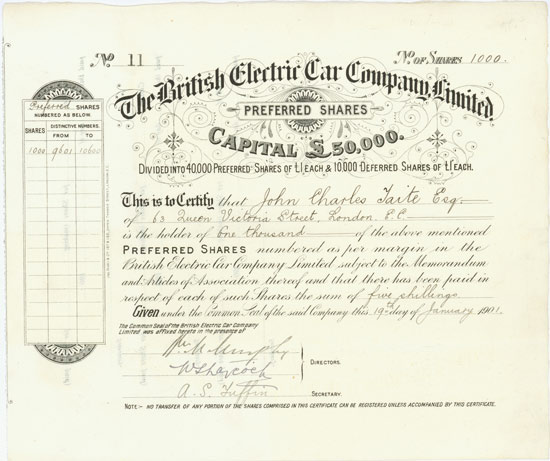 No 11
No. OF SHARES 1000.
The British Electric Car Company, Limited.
PREFERRED SHARES
CAPITAL £50,000.
DIVIDED INTO 40,000 PREFERRED SHARES OF £1 EACH & 10,000 DEFERRED SHARES OF £1 EACH.
Preferred SHARES
NUMBERED AS BELOW.
SHARES DISTINCTIVE NUMBERS.
FROM TO
1000 9601 10600
This is to Certify that John Charles Taite Esq
of 63 Queen Victoria Street, London. E.C.
is the holder of One thousand of the above mentioned
PREFERRED SHARES numbered as per margin in the
British Electric Car Company Limited subject to the Memorandum
and Articles of Association thereof and that there has been paid in
respect of each of such Shares the sum of five shillings.
Given under the Common Seal of the said Company this 19th day of January 1901.
The Common Seal of the British Electric Car Company
Limited was affixed hereto in the presence of
Wm. M. Murphy
DIRECTORS.
A. S. Tiffin
SECRETARY.
NOTE:- NO TRANSFER OF ANY PORTION OF THE SHARES COMPRISED IN THIS CERTIFICATE CAN BE REGISTERED UNLESS ACCOMPANIED BY THIS CERTIFICATE.